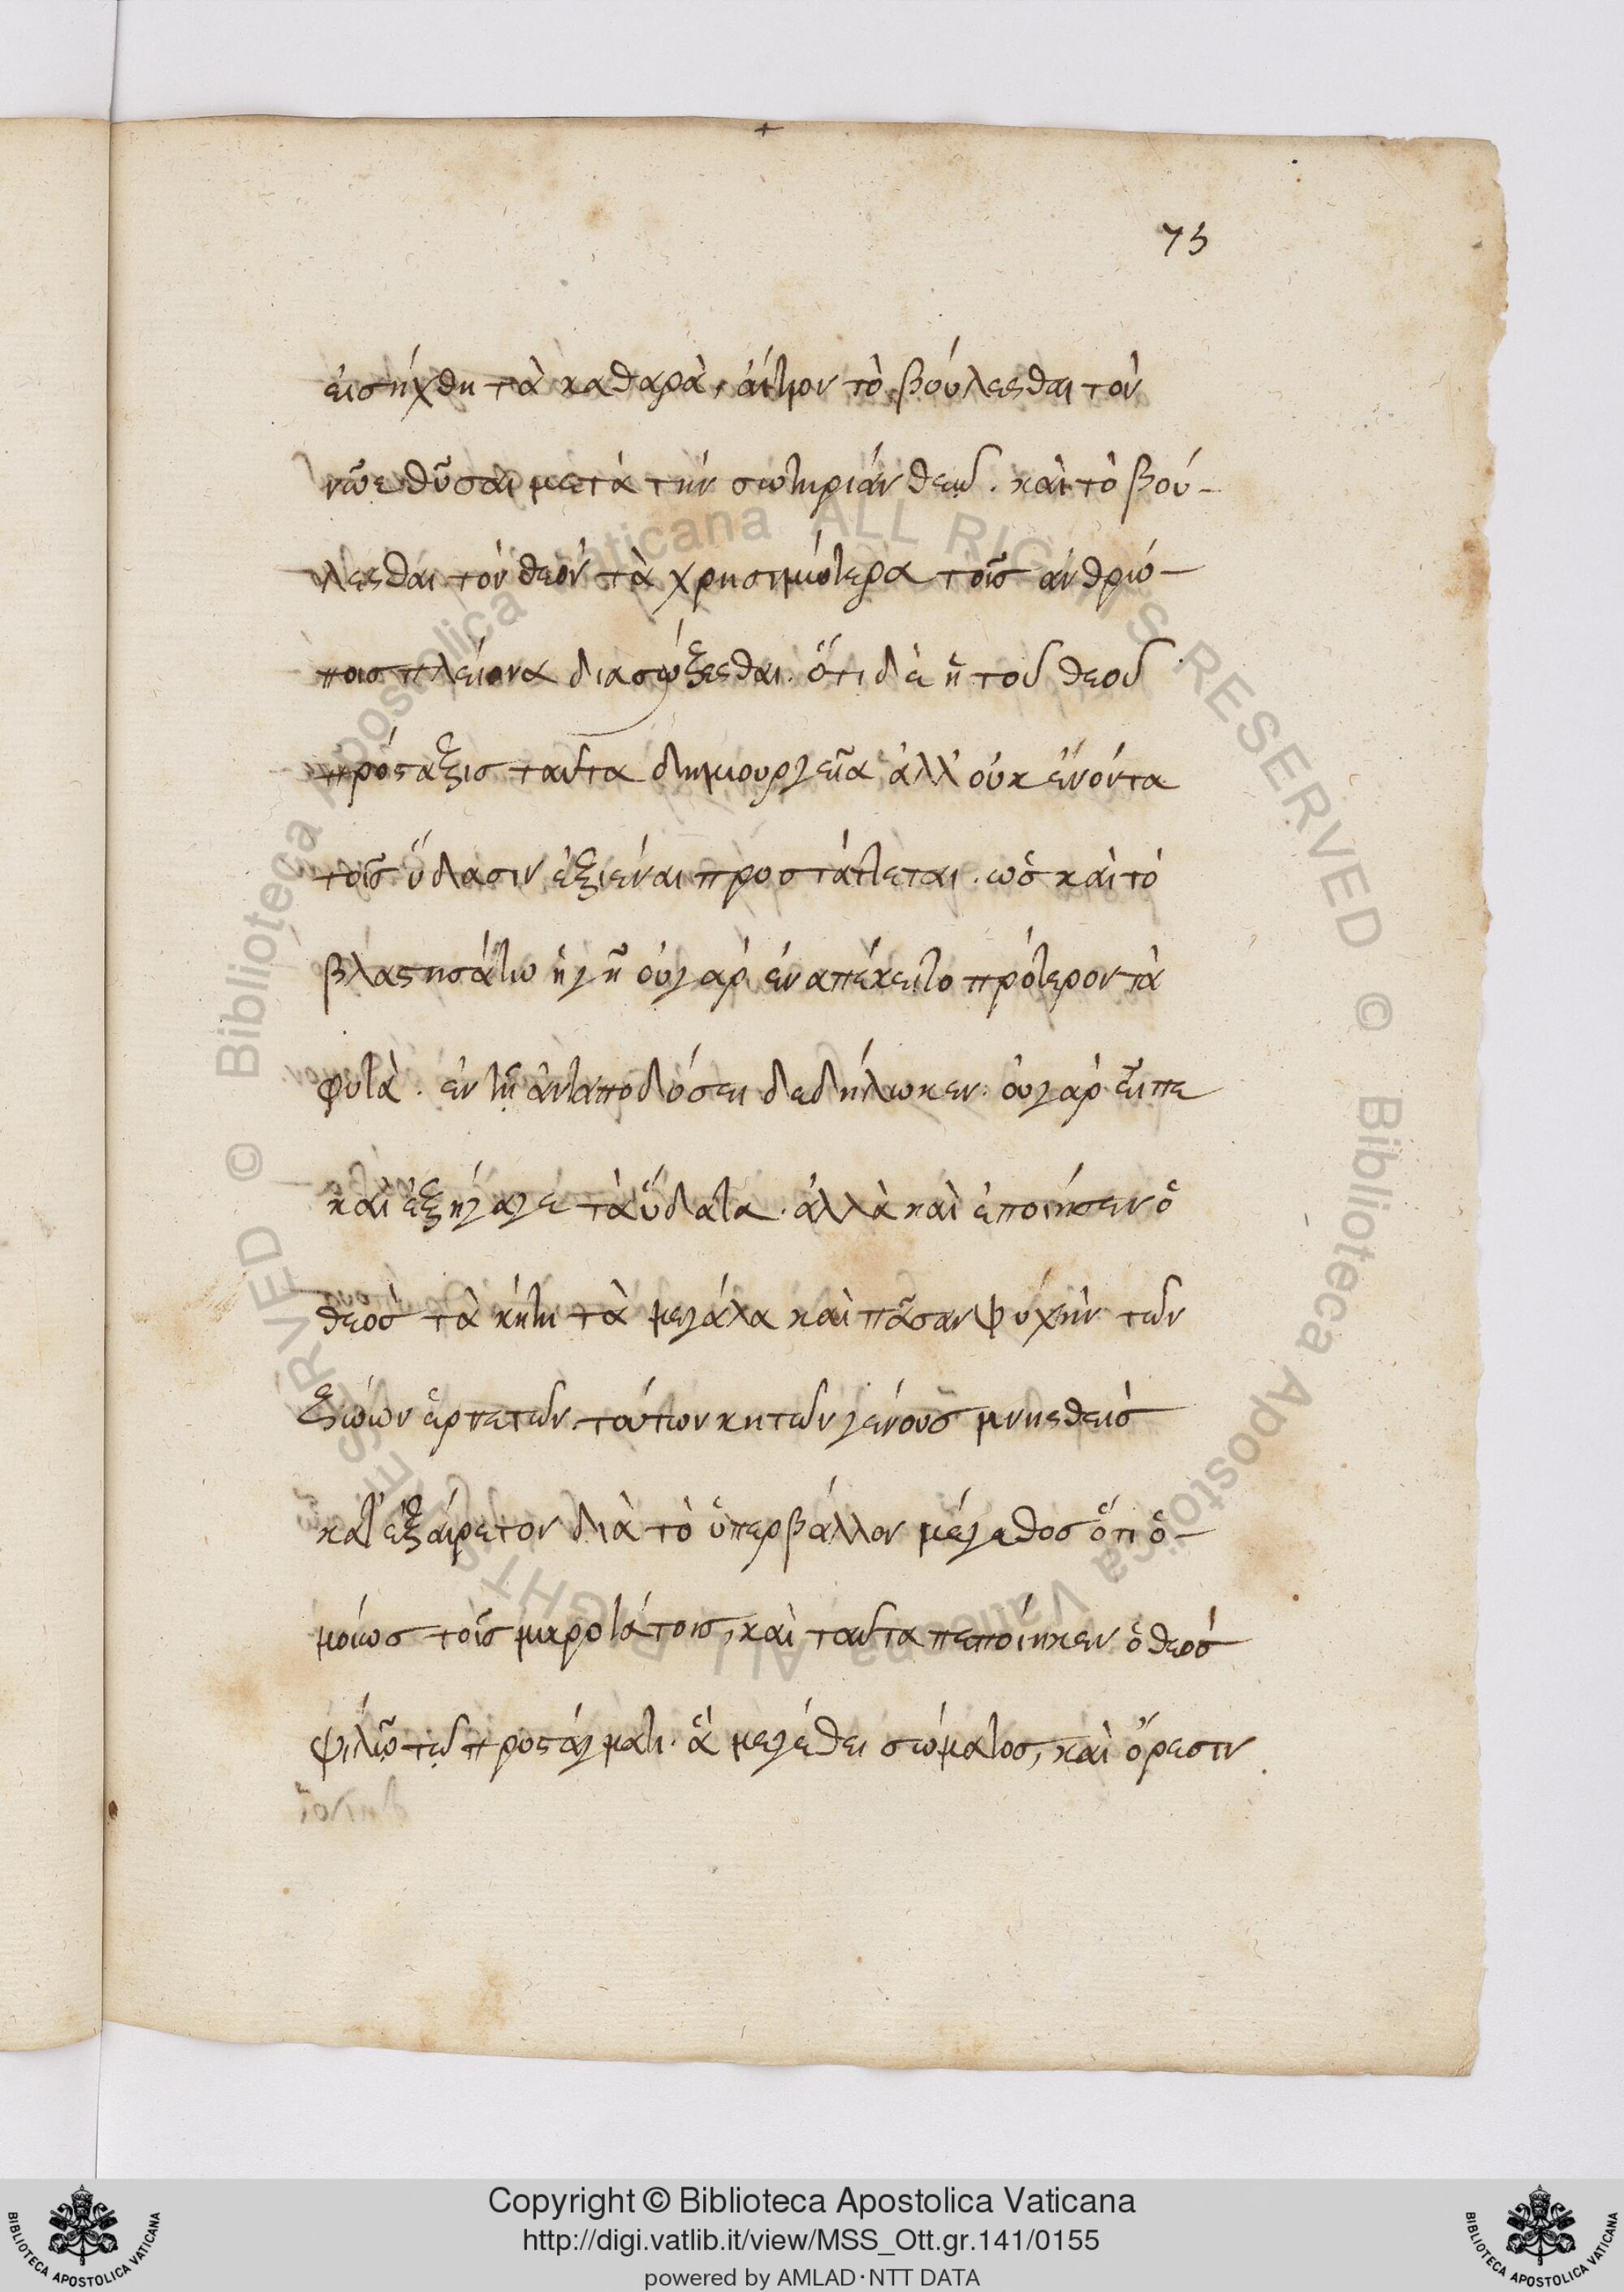 73
εἰσήχθη τὰ καθαρὰ, αἴτιον τὸ βούλεσθαι τὸν
νῶε θῦσαι μετὰ τὴν σωτηρίαν θεῷ. καὶ τὸ βού-
λεσθαι τὸν θεὸν τὰ χρησιμώτερα τοῖς ἀνθρώ-
ποις πλείονα διασώζεσθαι. ὅτι δὲ ἡ τοῦ θεοῦ
πρόσταξις ταῦτα δημιουργεῖ ἀλλ' οὐκ ἐνόντα
τοῖς ὕδασιν ἐξιέναι προστάττεται. ὡς καὶ τὸ
βλαστησάτω ἡ γῆ οὐ γὰρ ἐναπέκειτο πρότερον τὰ
φυτὰ. ἐν τῇ ἀνταποδόσει δεδήλωκεν. οὐ γὰρ εἶπε
καὶ ἐξήγαγε τὰ ὕδατα. ἀλλὰ καὶ ἐποίησεν ὁ
θεὸς τὰ κήτη τὰ μεγάλα καὶ πᾶσαν ψυχὴν τῶν
ζώων ἑρπετῶν. τούτων κητῶν γένους μνησθεὶς
κατ' ἐξαίρετον διὰ τὸ ὑπερβάλλον μέγεθος ὅτι ὁ-
μοίως τοῖς μικροτάτοις, καὶ ταῦτα πεποίηκεν ὁ θεὸς
ψιλῷ τῷ προστάγματι. ἃ μεγέθει σώματος, καὶ ὄρεσιν
Copyright © Biblioteca Apostolica Vaticana
http://digi.vatlib.it/view/MSS_Ott.gr.141/0155
powered by AMLAD·NTT DATA
BIBLIOTECA APOSTOLICA VATICANA
BIBLIOTECA APOSTOLICA VATICANA
© Biblioteca Apostolica Vaticana ALL RIGHTS RESERVED © Biblioteca Apostolica Vaticana ALL RIGHTS RESERVED